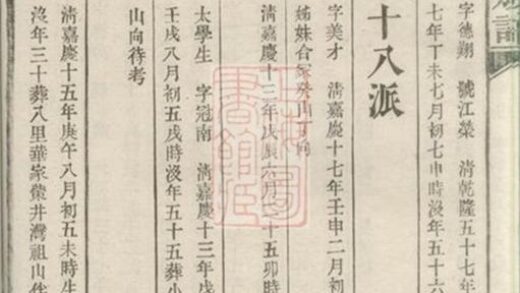 字德翔 號江榮 清乾隆五十七年
七年丁未七月初七申時沒年五十六
十八派
字美才 清嘉慶十七年壬申二月初
姊妹合冢癸山丁向
清嘉慶十三年戊辰六月二十五卯時
太學生 字冠南 清嘉慶十三年戊
壬戌八月初五戌時沒年五十五葬小
山向待考
清嘉慶十五年庚午八月初五未時生
沒年三十葬八里華家螢井灣祖山